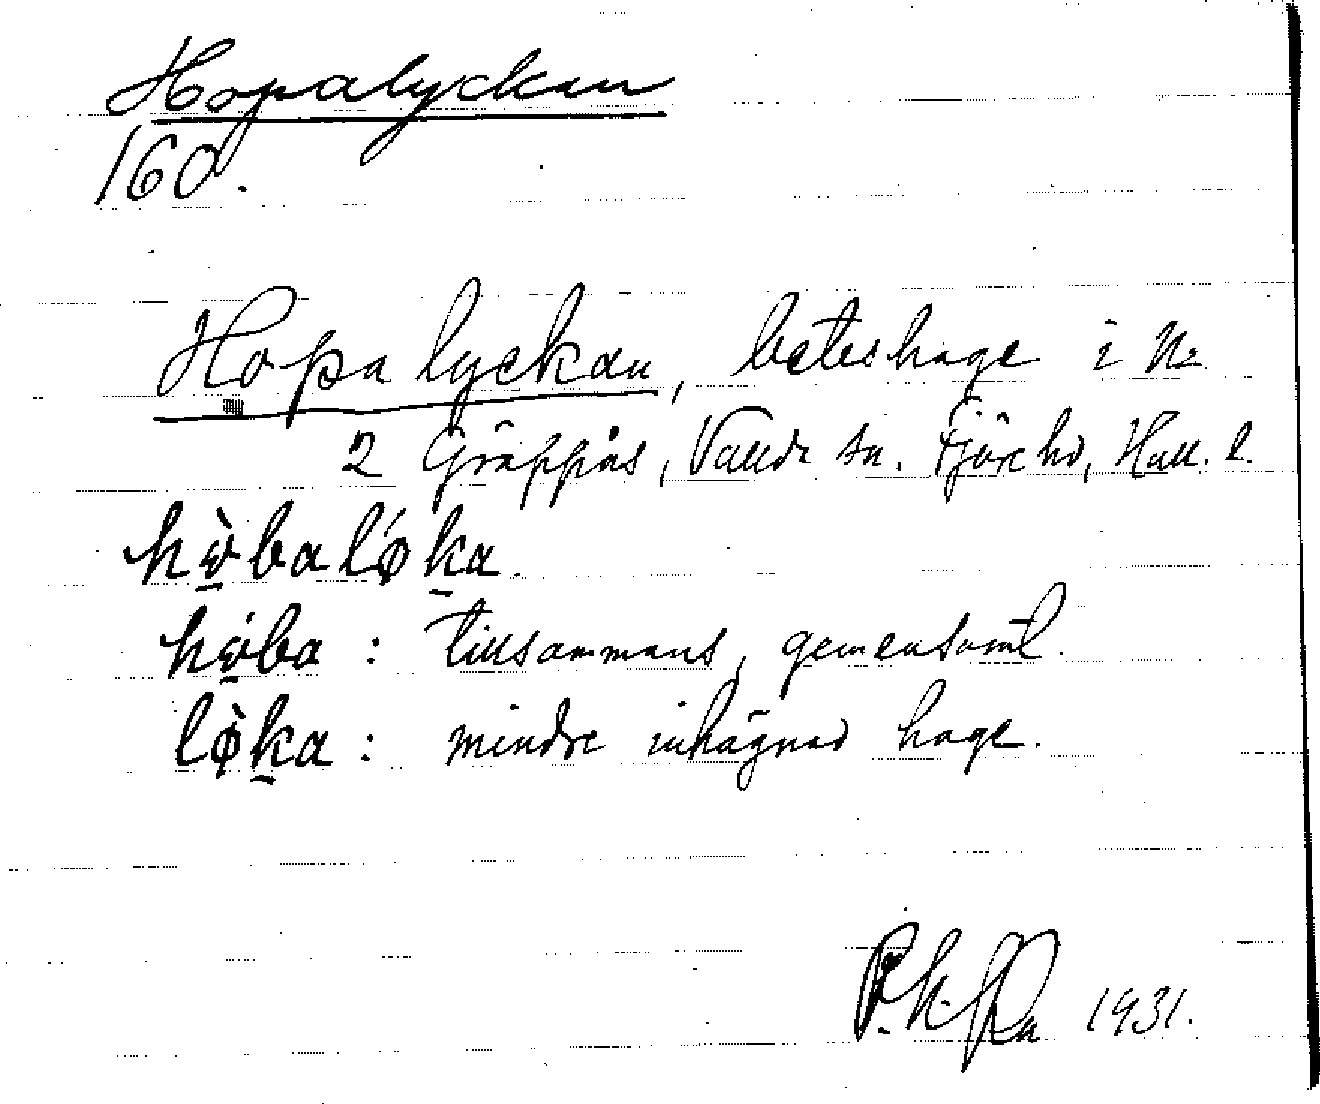 Hopalyckan
160.
Hopalyckan, beteshage i N:
2 Gräppås, Vallda sn. Fjäre hd, Hall. l.
hὼbalǿka.
hώba : tillsammans, gemensamt.
lø̀ka : mindre inhägnad hage.
1931.